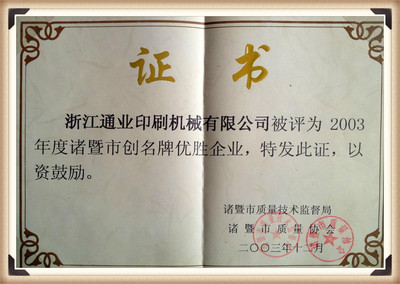 证书
浙江通业印刷机械有限公司被评为 2003
年度诸暨市创名牌优胜企业，特发此证，以
资鼓励。
诸暨市质量技术监督局
诸暨市质量协会
二〇〇三年十二月